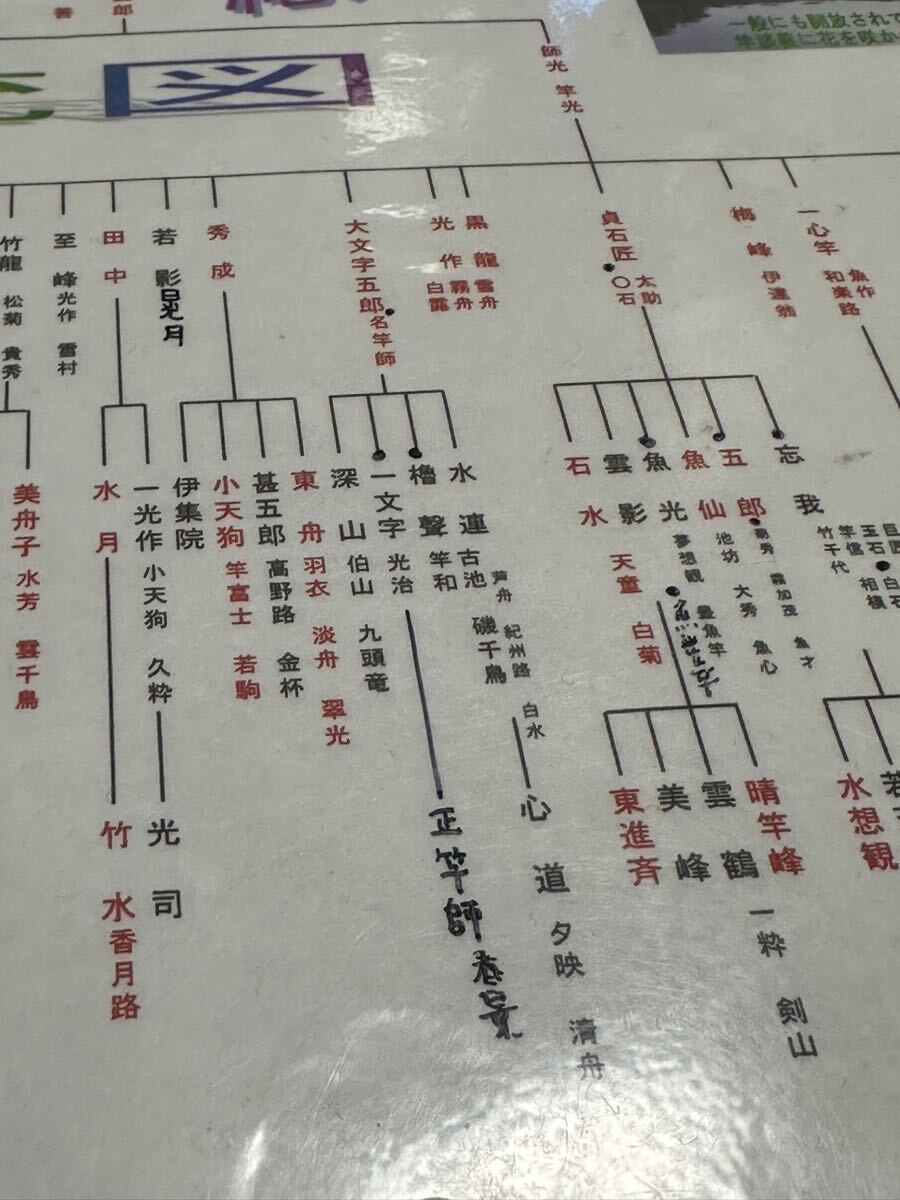 郎
善
図
一般にも開放されて
師光 竿光
一心竿
魚作
和楽路
梅峰 伊達翁
貞石匠
太助
〇石
黒龍 雲舟
霧舟
光作 白露
大文字五郎 名竿師
秀成
若影 晃月
田中
至峰 光作 雪村
竹龍 松菊 貴秀
忘我
五郎
魚仙
魚光
雲影
石水 天童 白菊
影秀 霧加茂 魚才
大秀 魚心
池坊 豊魚竿
夢想観
巨匠
白石
玉石 相模
竿信
竹千代
水連 古池
芦舟 紀州路 白水
磯千鳥
櫓聲 竿和
一文字 光治
深山 伯山 九頭竜
東舟 羽衣 淡舟 翠光
甚五郎 高野路 金杯
小天狗 竿富士 若駒
伊集院
一光作 小天狗 久粋
水月
美舟子 水芳 雲千鳥
晴竿峰
雲鶴
美峰
東進斉
一粋 剣山
水想観
心道 夕映 清舟
正竿師
光司
竹水 香月路